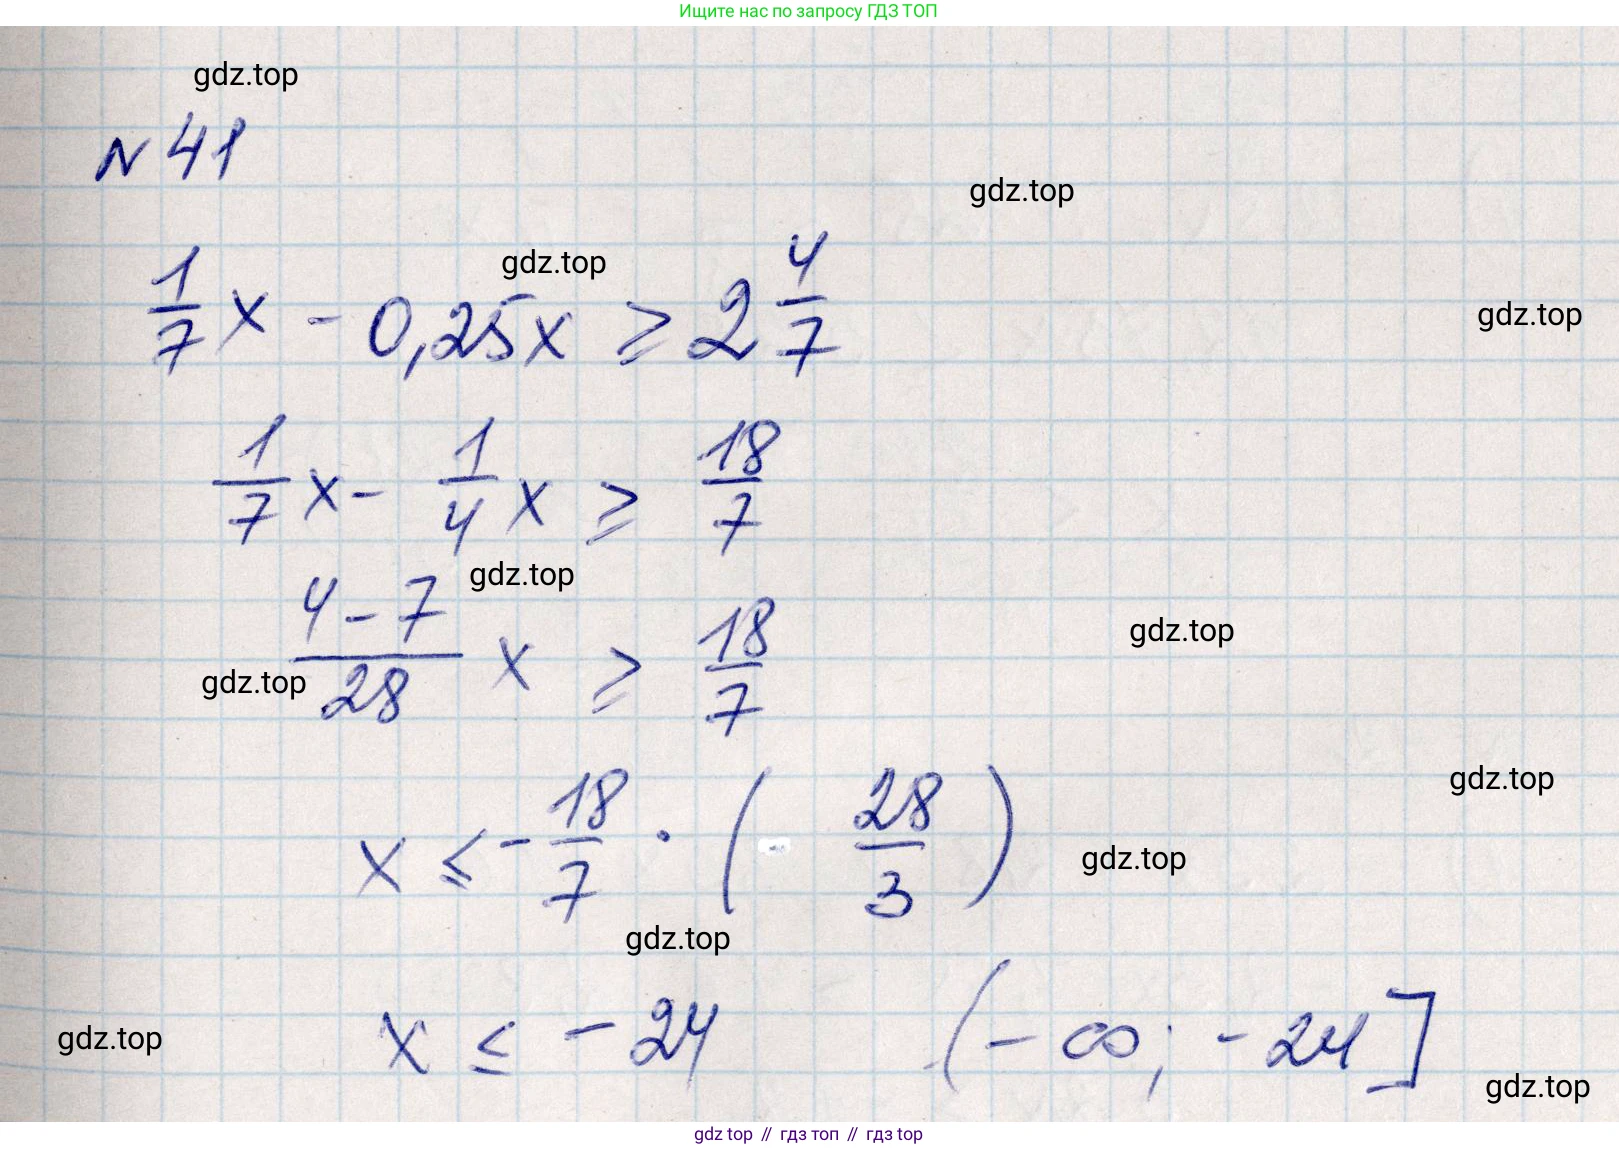 Ищите нас по запросу ГДЗ ТОП
gdz.top
N 41
gdz.top
gdz.top
1/7 x - 0,25x ≥ 2 4/7
gdz.top
1/7 x - 1/4 x ≥ 18/7
gdz.top
(4 - 7)/28 x ≥ 18/7
gdz.top
gdz.top
gdz.top
x ≤ - 18/7 · ( 28/3 )
gdz.top
gdz.top
x ≤ - 24 (- ∞; - 24]
gdz.top
gdz.top
gdz top // гдз топ // гдз top